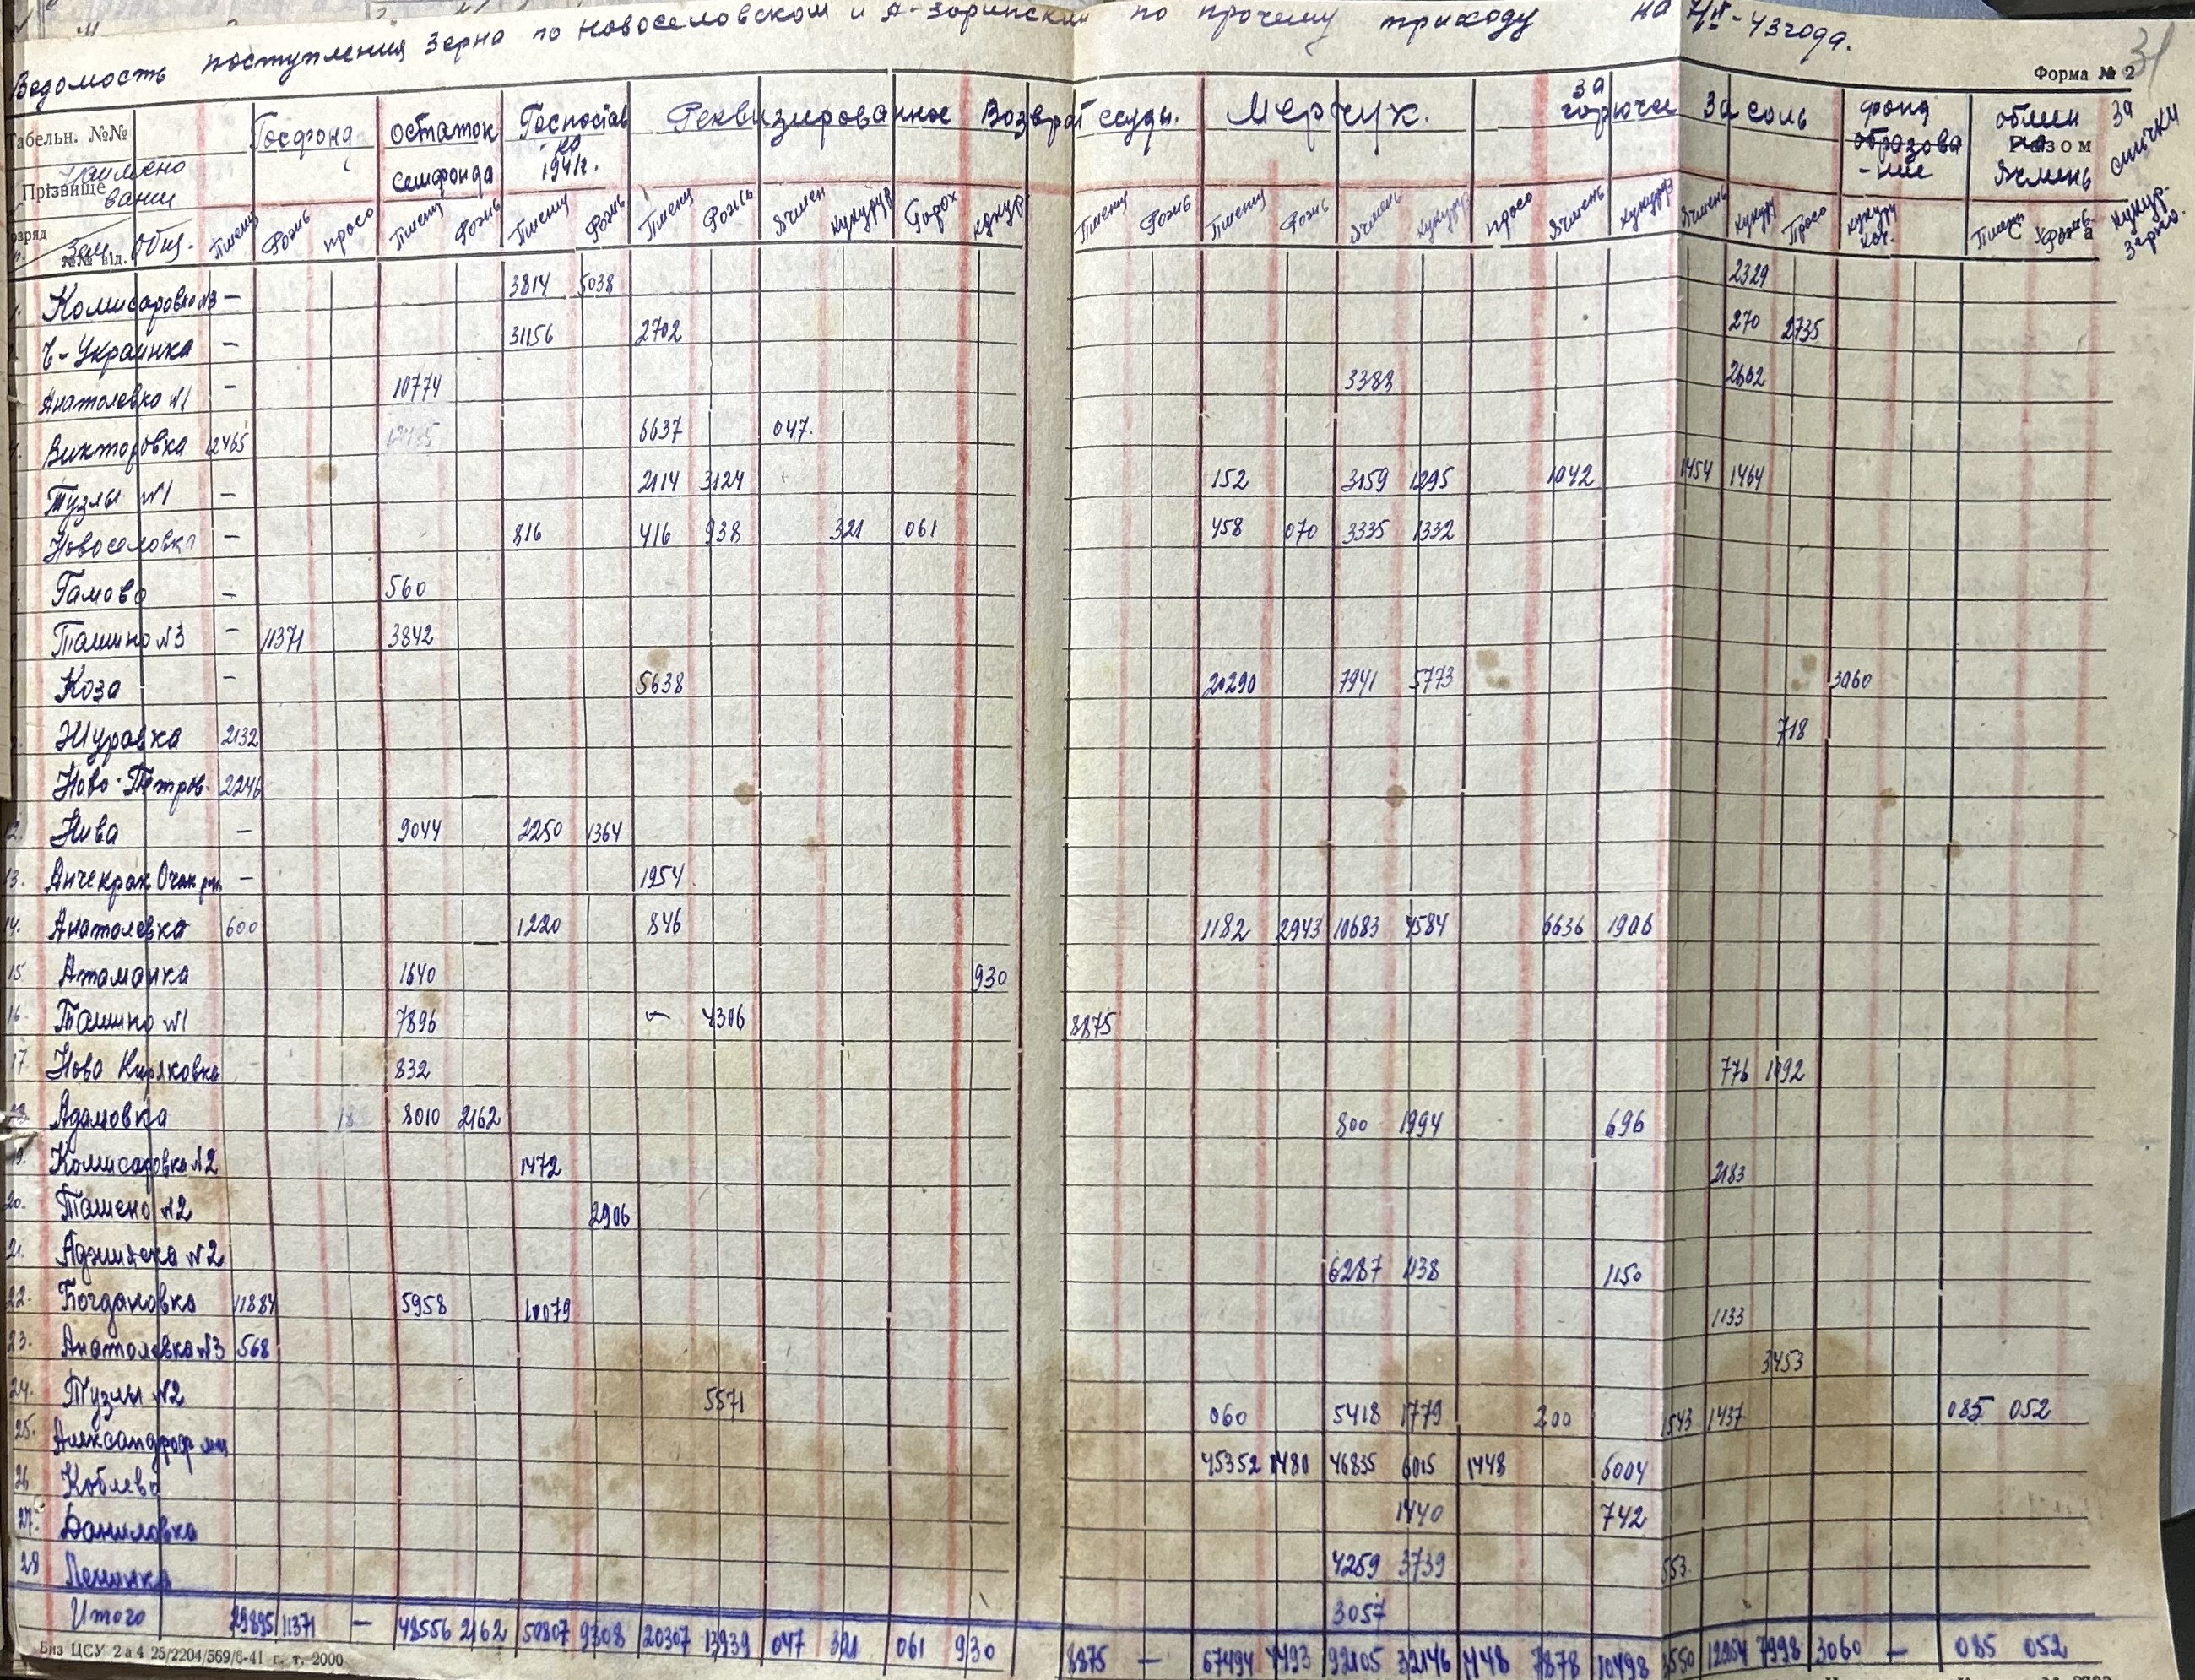 Ведомость поступления зерна по Новоселовском и А-Зоринским по прочему приходу на 1/II-43 года.
31
Форма № 2
Табельн. №№
Прізвище
Наимено
вание
озряд
№№ від.
Зем. Общ.
Госфонд остаток семфонда Госпостав ка 1941г. Реквизированное Возврат ссуды. Мерчук. За горюче За соль фонд образова -ние обмен на Ячмень За спички
Разом
Сума
Пшениц Рожь просо Пшениц Рожь Пшениц Рожь Пшениц Рожь Ячмен кукуруз Горох кукур Пшениц Рожь Пшениц Рожь Ячмень кукуруз просо Ячмень кукуруз Ячмень кукуру Просо кукуру кач. Пшен Рожь. кукур. зерно.
1. Комисаровка №3 — 3814 5038 2329
Ч-Украинка — 31156 2702 270 2735
Анатолевка №1 — 10774 3388 2602
4. Викторовка 12465 12435 6637 047.
Тузлы №1 — 2114 3124 152 3159 1295 1042 1454 1464
Новоселовка — 816 416 938 321 061 458 070 3335 1332
Гамово — 560
Ташино №3 — 11371 3842
Коза — 5638 20290 7941 5773 3060
Журавка 2132 718
Ново-Петров. 2246
12. Нива — 9044 2250 1364
13. Анчекрак Очак рн — 1954
14. Анатолевка 600 1220 846 1182 2943 10683 4584 6636 1906
15 Атаманка 1640 930
16. Ташино №1 7896 — 4306 8875
17 Ново Киряковка 832 776 1092
Адамовка 18 8010 2162 800 1994 696
19. Комисаровка №2 1472 2183
20. Ташено №2 2906
21. Аджияска №2 6287 1138 1150
22. Богдановка 11884 5958 10079 1133
23. Анатолевка №3 568 3453
24. Тузлы №2 5571 060 5418 1779 200 1543 1437 085 052
25. 45352 1480 46835 6015 1448 6004
26 Коблево 1440 742
27. Даниловка 4259 3739 553
28 Ленинка 3057
Итого 29895 11371 — 48556 2162 50807 9308 20307 13939 047 321 061 930 8875 — 67494 4493 92105 32146 1448 7878 10498 3550 12204 7998 3060 — 085 052
Биз ЦСУ 2 а 4 25/2204/569/6-41 г. т. 2000